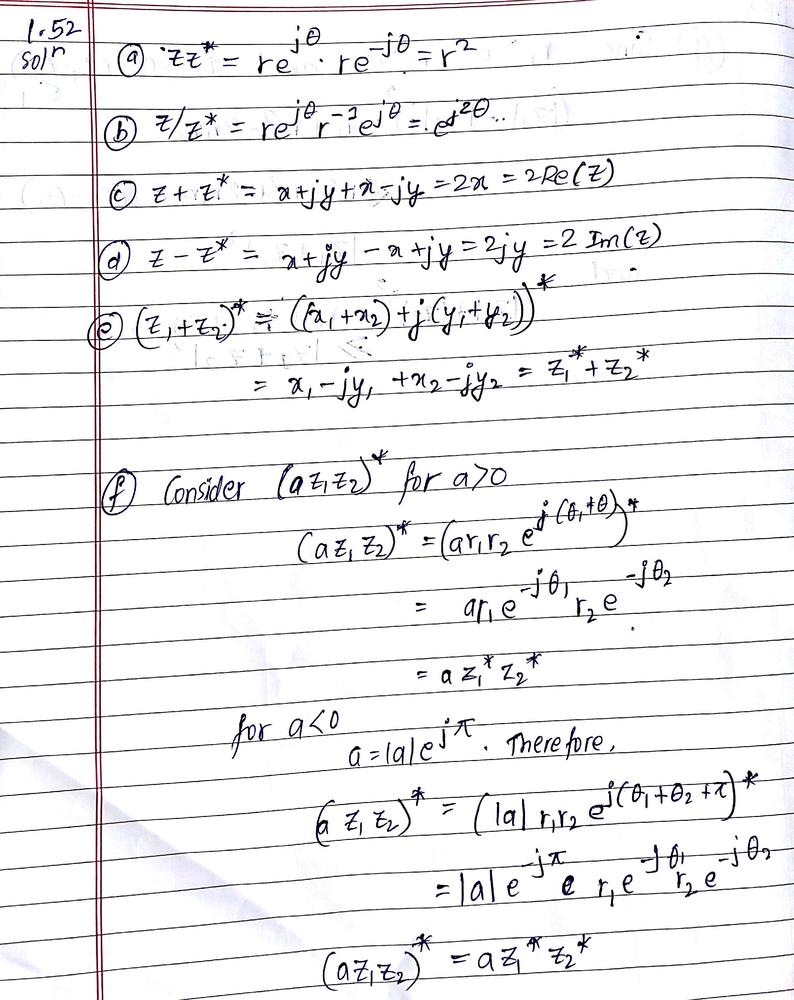 1.52
solⁿ
ⓐ zz* = re^{jθ} · re^{-jθ} = r²
ⓑ z/z* = re^{jθ} r^{-1} e^{jθ} = e^{j2θ}
ⓒ z + z* = x+jy+x-jy = 2x = 2Re(z)
ⓓ z - z* = x+jy - x+jy = 2jy = 2 Im(z)
ⓔ (z₁+z₂)* = ((x₁+x₂)+j(y₁+y₂))*
= x₁-jy₁ +x₂-jy₂ = z₁*+z₂*
ⓕ Consider (az₁z₂)* for a>0
(az₁z₂)* = (ar₁r₂ e^{j(θ₁+θ)})*
= ar₁e^{-jθ₁} r₂e^{-jθ₂}
= a z₁* z₂*
for a<0
a=|a|e^{jπ}. Therefore,
(a z₁z₂)* = (|a| r₁r₂ e^{j(θ₁+θ₂+π)})*
= |a| e^{-jπ} r₁e^{-jθ₁} r₂e^{-jθ₂}
(az₁z₂)* = az₁* z₂*